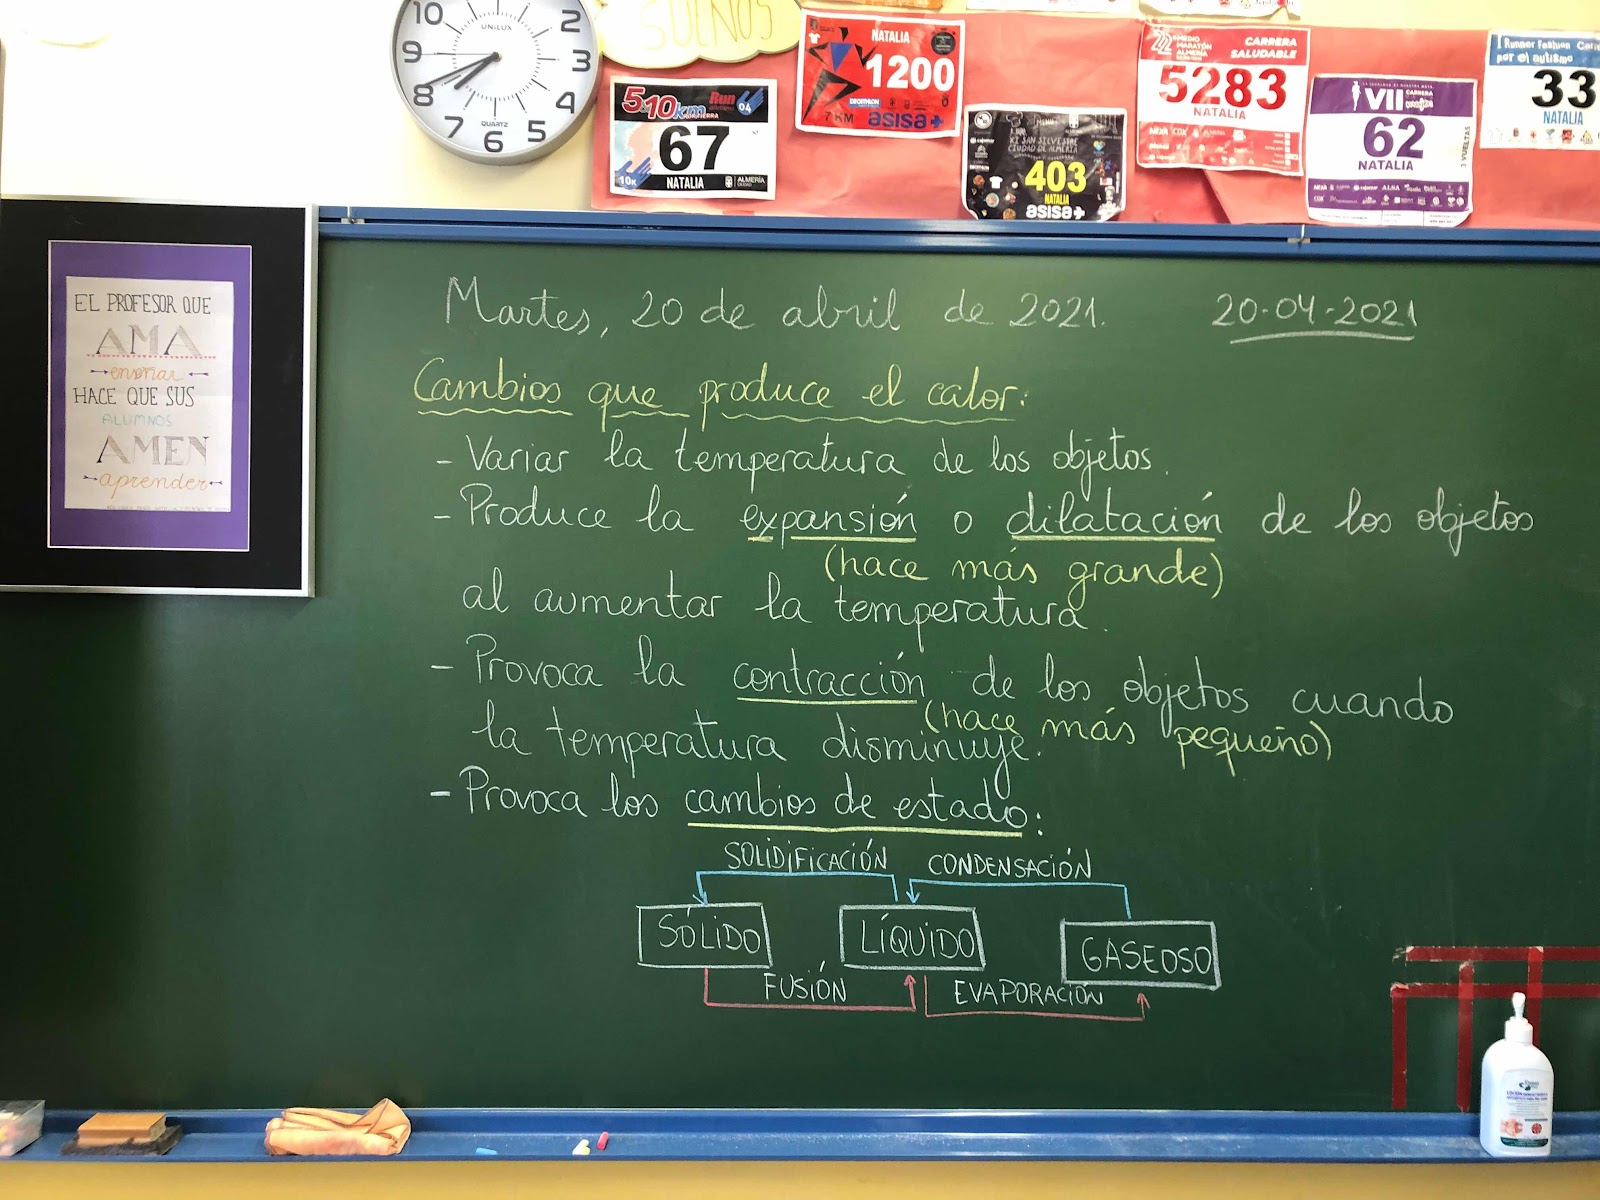 SUEÑOS
10
2
9
3
8
4
7
6
5
UNILUX
QUARTZ
5 10km Run
04
67
NATALIA
10K
ALMERÍA
CIUDAD
NATALIA
1200
DECATHLON
7 KM
asisa+
XI SAN SILVESTRE
CIUDAD DE ALMERÍA
403
NATALIA
asisa+
MEDIO
MARATÓN
ALMERÍA
CARRERA
SALUDABLE
5283
NATALIA
VII CARRERA
62
NATALIA
3 VUELTAS
por el autismo
33
NATALIA
EL PROFESOR QUE
AMA
enseñar
HACE QUE SUS
ALUMNOS
AMEN
aprender
Martes, 20 de abril de 2021.
20-04-2021
Cambios que produce el calor:
- Variar la temperatura de los objetos.
- Produce la expansión o dilatación de los objetos
(hace más grande)
al aumentar la temperatura.
- Provoca la contracción de los objetos cuando
(hace más pequeño)
la temperatura disminuye.
- Provoca los cambios de estado:
SOLIDIFICACIÓN
CONDENSACIÓN
SÓLIDO
LÍQUIDO
GASEOSO
FUSIÓN
EVAPORACIÓN